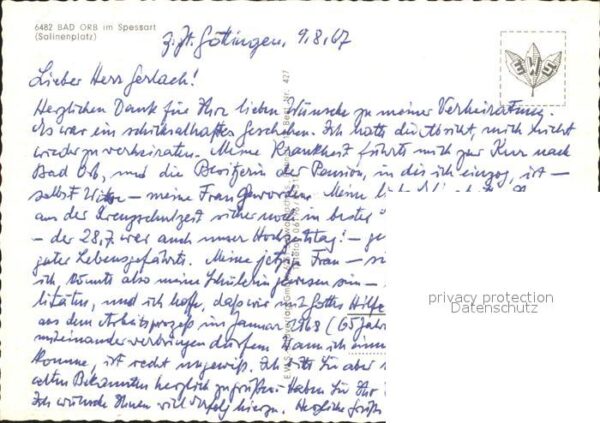 6482 BAD ORB im Spessart
(Salinenplatz)
z. Zt. Göttingen, 9.8.67
Lieber Herr Gerlach!
Herzlichen Dank für Ihre lieben Wünsche zu meiner Verheiratung.
Es war ein schicksalhaftes Geschehen. Ich hatte die Absicht, mich nicht
wieder zu verheiraten. Meine Krankheit führte mich zur Kur nach
Bad Orb, und die Besitzerin der Pension, in die ich einzog, ist –
selbst Witwe – meine Frau geworden. Meine
aus der Kreuzschulzeit sicher noch in bester
– der 28.7. war auch unser Hochzeitstag! –
guter Lebensgefährte. Meine jetzige Frau –
ich, könnte also meine Schülerin gewesen sein –
litäten, und ich hoffe, daß wir mit Gottes Hilfe
aus dem Arbeitsprozeß im Januar 1968 (65 Jahre
miteinander verbringen dürfen. Wann ich einm
komme, ist recht ungewiß. Ich bitte Sie aber
alten Bekannten herzlich zu grüßen. Haben Sie Ihr
Ich wünsche Ihnen viel Erfolg hierzu. Herzliche Grüße
Best. Nr. 427
privacy protection
Datenschutz